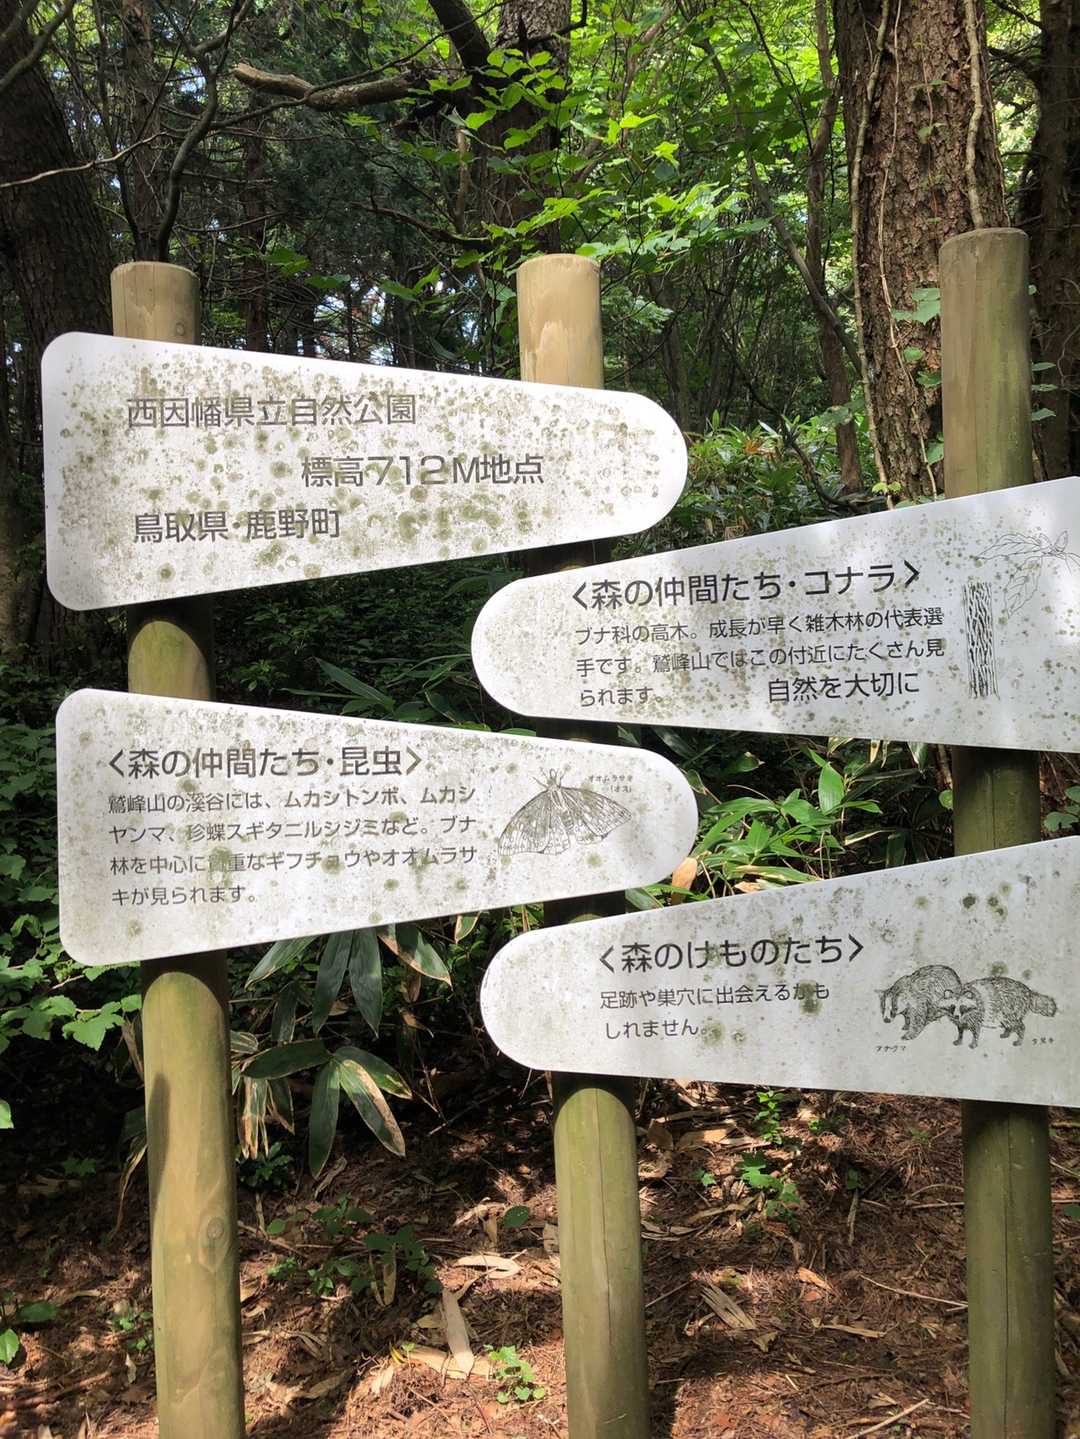 西因幡県立自然公園
標高712M地点
鳥取県・鹿野町
〈森の仲間たち・コナラ〉
ブナ科の高木。成長が早く雑木林の代表選
手です。鷲峰山ではこの付近にたくさん見
られます。 自然を大切に
〈森の仲間たち・昆虫〉
鷲峰山の渓谷には、ムカシトンボ、ムカシ
ヤンマ、珍蝶スギタニルシジミなど。ブナ
林を中心に貴重なギフチョウやオオムラサ
キが見られます。
オオムラサキ
(オス)
〈森のけものたち〉
足跡や巣穴に出会えるかも
しれません。
アナグマ
タヌキ